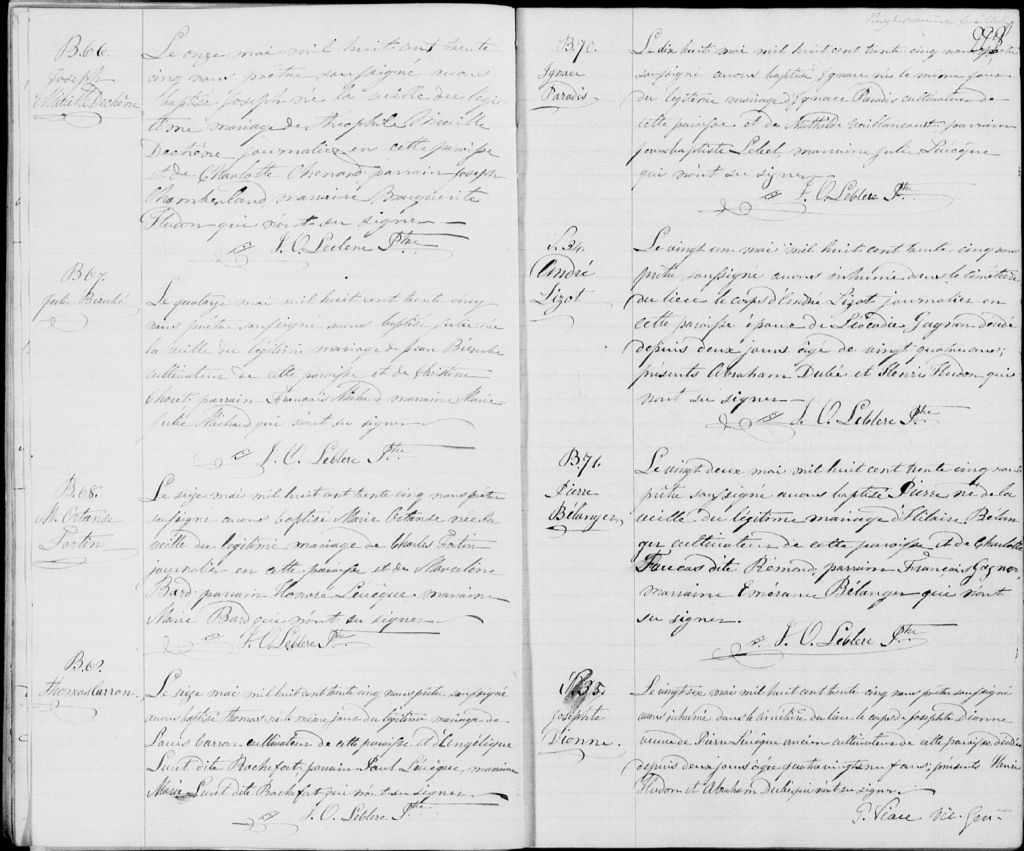 B.66.
Joseph
Miville Dechêne
Le onze mai mil huit cent trente
cinq nous prêtre soussigné avons
baptisé Joseph né la veille du légi
time mariage de théophile Miville
Dechêne journalier en cette paroisse
et de Charlotte Chenard, parrain Joseph
Chamberland marraine Marguerite
Hudon qui n'ont su signer
J. O. Leclerc Ptre
B.67.
Julie Bérubé
Le quatorze mai mil huit cent trente cinq
nous prêtre soussigné avons baptisé Julie née
la veille du légitime mariage de Jean Bérubé
cultivateur de cette paroisse et de Christine
Choret parrain François Michaud marraine Marie
Julie Michaud qui n'ont su signer
J. O. Leblerc Ptre
B.68.
M. Octande
Fortin
Le seize mai mil huit cent trente cinq nous prêtre
soussigné avons baptisé Marie Octande née la
veille du légitime mariage de Charles Fortin
journalier en cette paroisse et de Marceline
Bard parrain Honoré Lévêque marraine
Marie Bard qui n'ont su signer
J. O. Leblerc Ptre
B.69.
Thomas Carron
Le seize mai mil huit cent trente cinq nous prêtre soussigné
avons baptisé thomas né le même jour du légitime mariage de
Louis Carron cultivateur de cette paroisse et d'Angélique
Laut dite Rochefort, parrain Paul Lévêque, marraine
Marie Laut dite Rochefort qui n'ont su signer
J. O. Leblerc Ptre
B.70.
Ignace
Paradis
Le dix huit mai mil huit cent trente cinq nous prêtre
soussigné avons baptisé Ignace né le même jour
du légitime mariage d'Ignace Paradis cultivateur de
cette paroisse et de Mathilde vaillancourt, parrain
Jean baptiste Lebel, marraine Julie Lévêque
qui n'ont su signer
J. O. Leblerc Ptre
S.34.
André
Lizot
Le vingt un mai mil huit cent trente cinq nous
prêtre soussigné avons inhumé dans le cimetière
du lieu le corps d'André Lizot journalier en
cette paroisse époux de Léocadie Gagnon décédé
depuis deux jours âgé de vingt quatre ans;
présents Abraham Dubé et Henri Hudon qui
n'ont su signer
J. O. Leblerc Ptre
B.71.
Pierre
Bélanger
Le vingt deux mai mil huit cent trente cinq nous
prêtre soussigné avons baptisé Pierre né de la
veille du légitime mariage d'Hilaire Bélan
ger cultivateur de cette paroisse et de Charlotte
Foucas dite Remond, parrain François Gagnon,
marraine Emérance Bélanger qui n'ont
su signer.
J. O. Leblerc Ptre
S.35.
Josephte
Dionne.
Le vingt six mai mil huit cent trente cinq nous prêtre soussigné
avons inhumé dans le cimetière du lieu le corps de Josephte Dionne
veuve de Pierre Lévêque ancien cultivateur de cette paroisse, décédée
depuis deux jours âgée quatre vingts neuf ans; présents Henri
Hudon et Abraham Dubé qui n'ont su signer.
P. Viau Vic. Gen.